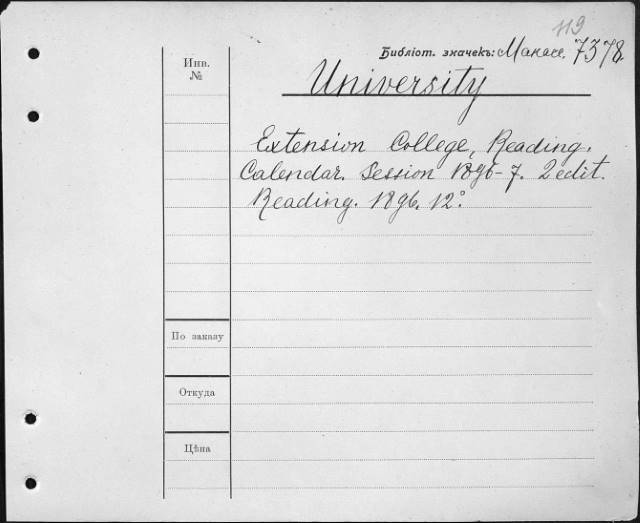 119
Библіот. значекъ: Манасе. 7378.
Инв.
№
University
Extension College, Reading.
Calendar. Session 1896-7. 2 edit.
Reading. 1896. 12°.
По заказу
Откуда
Цѣна